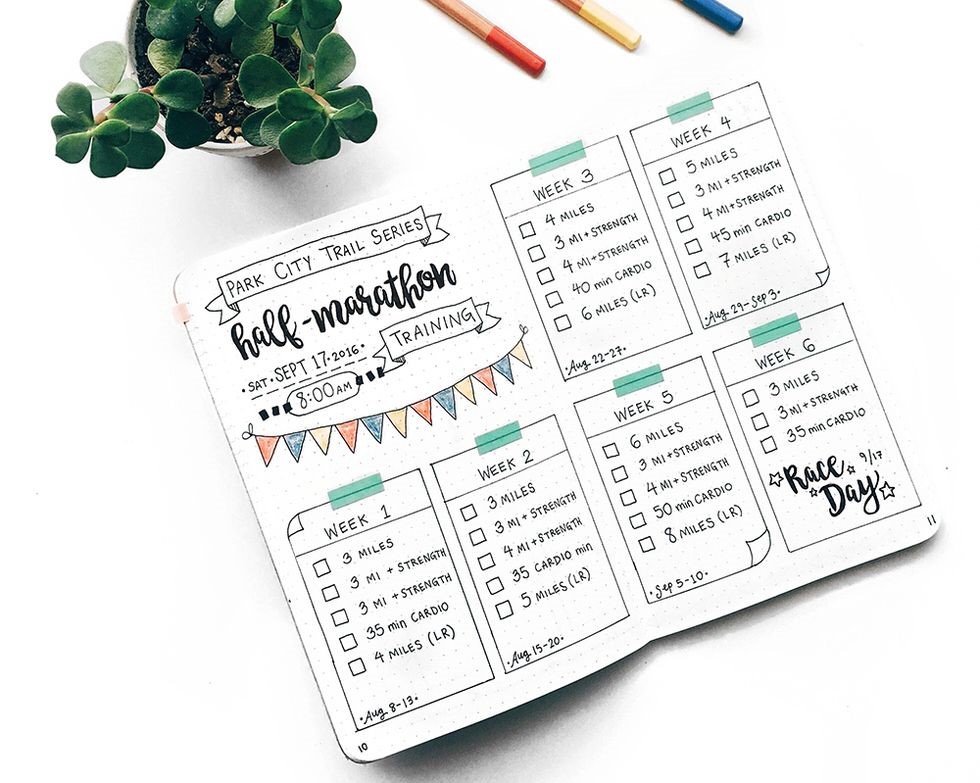 PARK CITY TRAIL SERIES
half-marathon
TRAINING
•SAT•SEPT 17•2016•
8:00AM
WEEK 1
3 MILES
3 MI + STRENGTH
3 MI + STRENGTH
35 min CARDIO
4 MILES (LR)
•Aug 8-13•
10
WEEK 2
3 MILES
3 MI + STRENGTH
4 MI + STRENGTH
35 CARDIO min
5 MILES (LR)
•Aug 15-20•
WEEK 3
4 MILES
3 MI + STRENGTH
4 MI + STRENGTH
40 min CARDIO
6 MILES (LR)
•Aug 22-27•
WEEK 4
5 MILES
3 MI + STRENGTH
4 MI + STRENGTH
45 min CARDIO
7 MILES (LR)
•Aug 29-Sep 3•
WEEK 5
6 MILES
3 MI + STRENGTH
4 MI + STRENGTH
50 min CARDIO
8 MILES (LR)
•Sep 5-10•
WEEK 6
3 MILES
3 MI + STRENGTH
35 min CARDIO
Race 9/17
Day
11